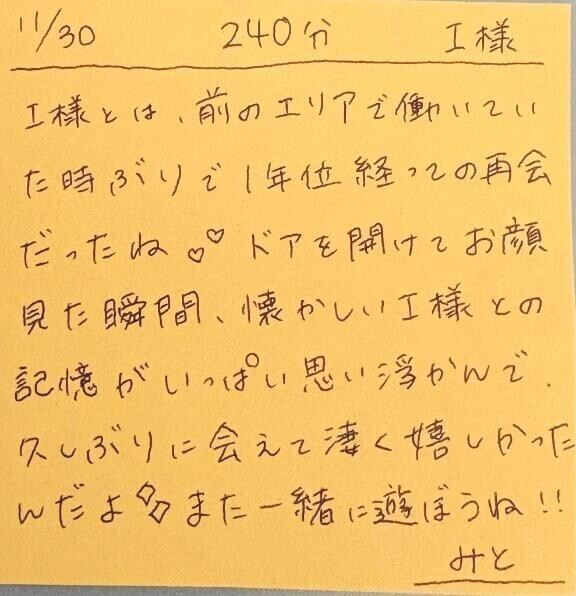 11/30 240分 I様
I様とは、前のエリアで働いてい
た時ぶりで1年位経っての再会
だったね♡♡ ドアを開けてお顔
見た瞬間、懐かしいI様との
記憶がいっぱい思い浮かんで、
久しぶりに会えて凄く嬉しかった
んだよ◇◇また一緒に遊ぼうね!!
みと